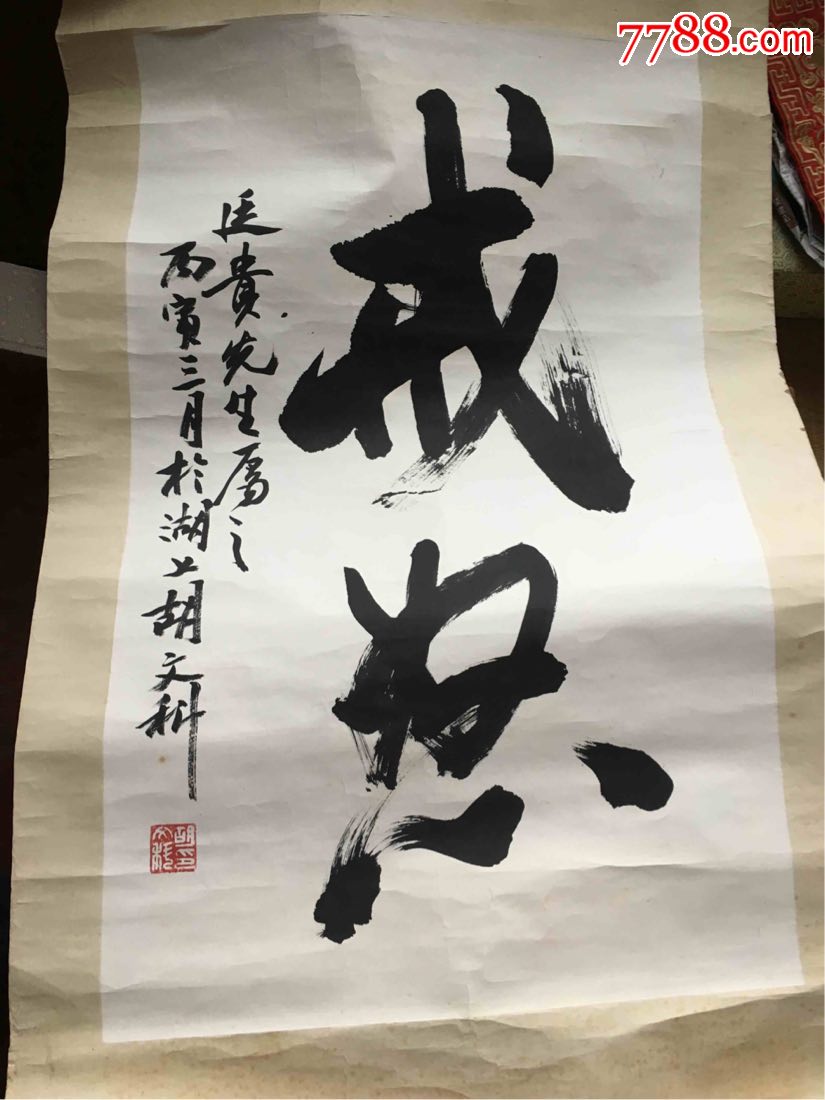 7788.com
戒怒
廷貴先生属之
丙寅三月於湖上胡文科